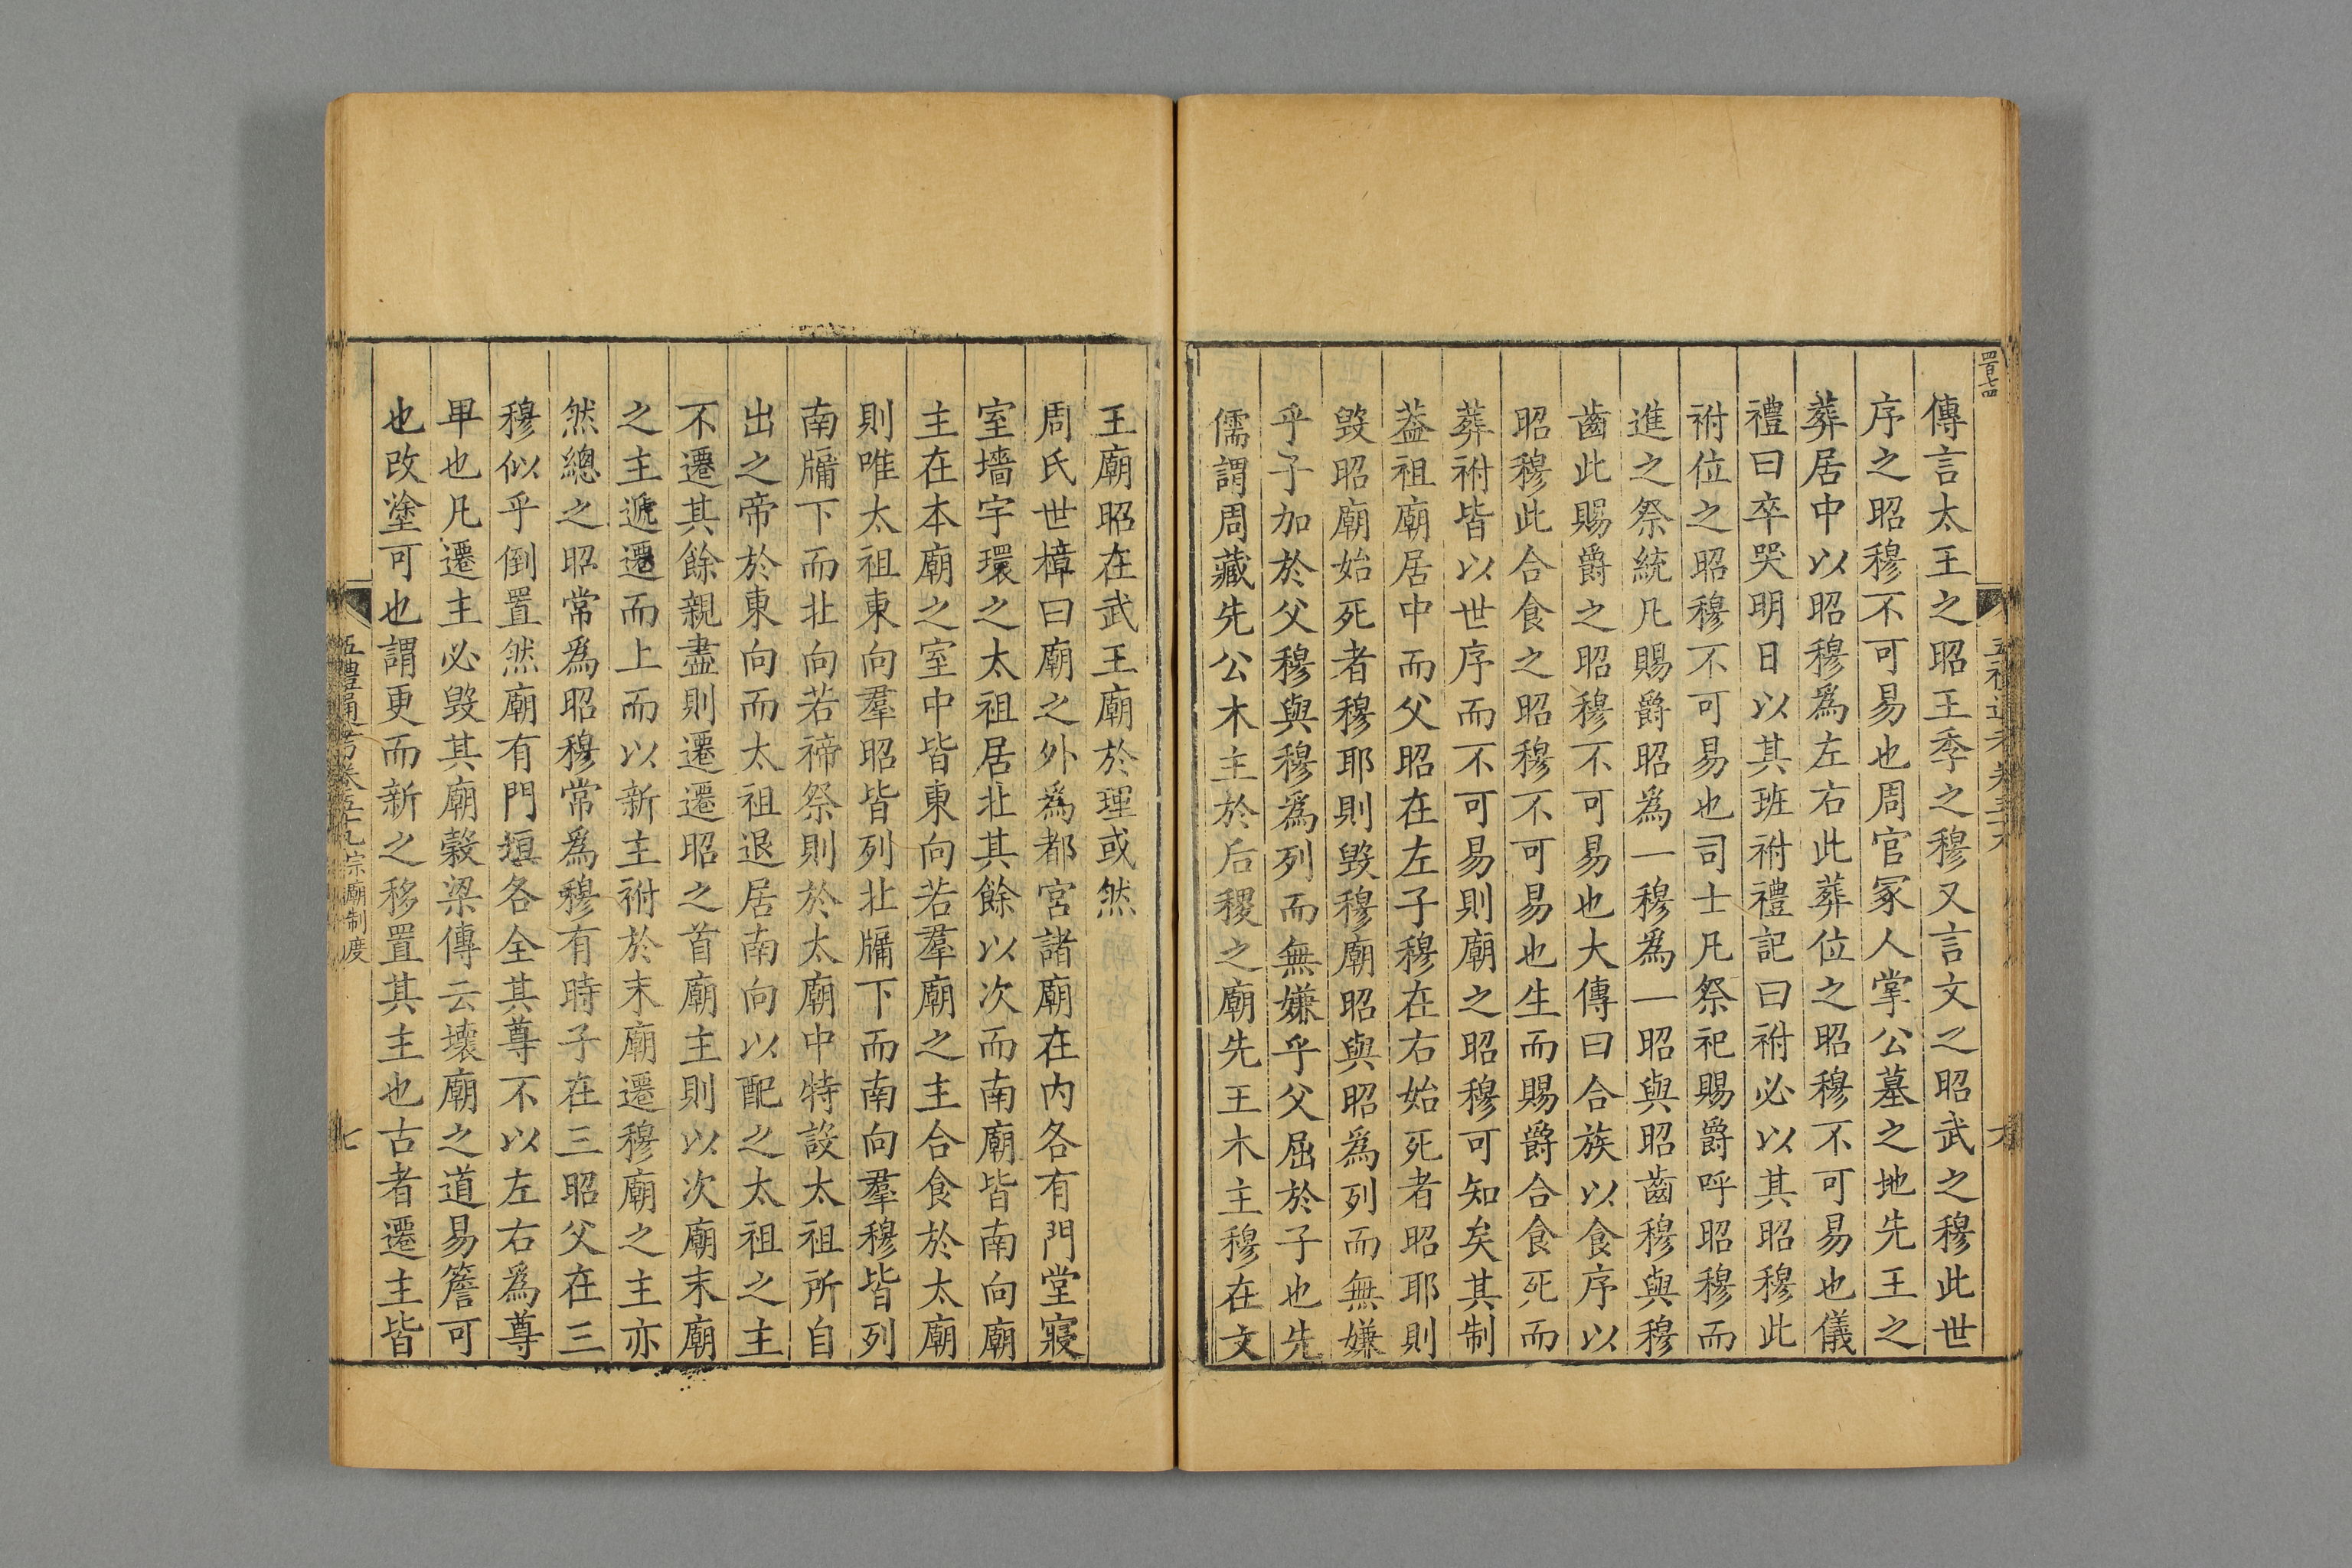 傳言太王之昭王季之穆又言文之昭武之穆此世
序之昭穆不可易也周官冢人掌公墓之地先王之
葬居中以昭穆爲左右此葬位之昭穆不可易也儀
禮曰卒哭明日以其班祔禮記曰祔必以其昭穆此
祔位之昭穆不可易也司士凡祭祀賜爵呼昭穆而
進之祭統凡賜爵昭爲一穆爲一昭與昭齒穆與穆
齒此賜爵之昭穆不可易也大傳曰合族以食序以
昭穆此合食之昭穆不可易也生而賜爵合食死而
葬祔皆以世序而不可易則廟之昭穆可知矣其制
葢祖廟居中而父昭在左子穆在右始死者昭耶則
毀昭廟始死者穆耶則毀穆廟昭與昭爲列而無嫌
乎子加於父穆與穆爲列而無嫌乎父屈於子也先
儒謂周藏先公木主於后稷之廟先王木主穆在文
王廟昭在武王廟於理或然
周氏世樟曰廟之外爲都宮諸廟在内各有門堂寢
室墻宇環之太祖居北其餘以次而南廟皆南向廟
主在本廟之室中皆東向若羣廟之主合食於太廟
則唯太祖東向羣昭皆列北牖下而南向羣穆皆列
南牖下而北向若禘祭則於太廟中特設太祖所自
出之帝於東向而太祖退居南向以配之太祖之主
不遷其餘親盡則遷遷昭之首廟主則以次廟末廟
之主遞遷而上而以新主祔於末廟遷穆廟之主亦
然總之昭常爲昭穆常爲穆有時子在三昭父在三
穆似乎倒置然廟有門垣各全其尊不以左右爲尊
卑也凡遷主必毀其廟穀梁傳云壞廟之道易簷可
也改塗可也謂更而新之移置其主也古者遷主皆
五禮通考卷五十九宗廟制度
七